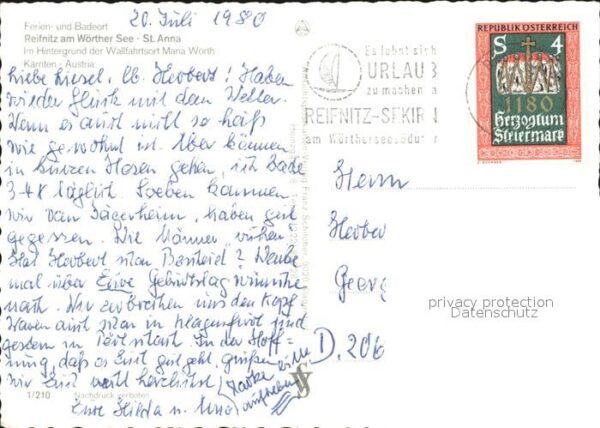 20. Juli 1980
Ferien- und Badeort
Reifnitz am Wörther See · St. Anna
Im Hintergrund der Wallfahrtsort Maria Wörth
Kärnten - Austria
Liebe Liesel, lb. Herbert! Haben
wieder Glück mit dem Wetter.
Wenn es auch nicht so heiß
wie gewohnt ist. Aber können
in kurzen Hosen gehen, ich Bade
3-4x täglich. Soeben kommen
wir vom Jägerheim, haben gut
gegessen. Die Männer ruhen
Hat Herbert schon Bescheid? Denke
mal über Eure Geburtstagwünsche
nach. Wir zerbrechen uns den Kopf
Waren auch schon in Klagenfurt und
gestern in Pörtschach. In der Hoff-
nung, daß es Euch gut geht, grüßen
wir Euch recht herzlichst
Eure Hilda u.
Marke bitte
aufheben
1/210 Nachdruck verboten
Es lohnt sich
URLAUB
zu machen
REIFNITZ-SEKIR
am Wörtherseesüdufer
REPUBLIK ÖSTERREICH
S 4
1180
Herzogtum
Steiermark
Herrn
Herber
Georg
privacy protection
Datenschutz
D. 206